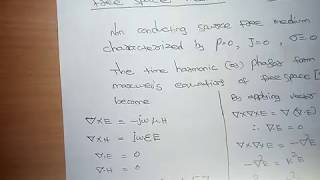 free space
Non conducting source free medium
characterized by ρ=0, J=0, σ=0
The time harmonic (or) phasor form
maxwell's equations of free space
become
∇×E = -jωμH
∇×H = jωεE
∇.E = 0
∇.H = 0
By applying vector
∇×∇×E = ∇(∇.E)
∴ ∇.E = 0
∇×∇×E = -∇²E
-∇²E = k²E